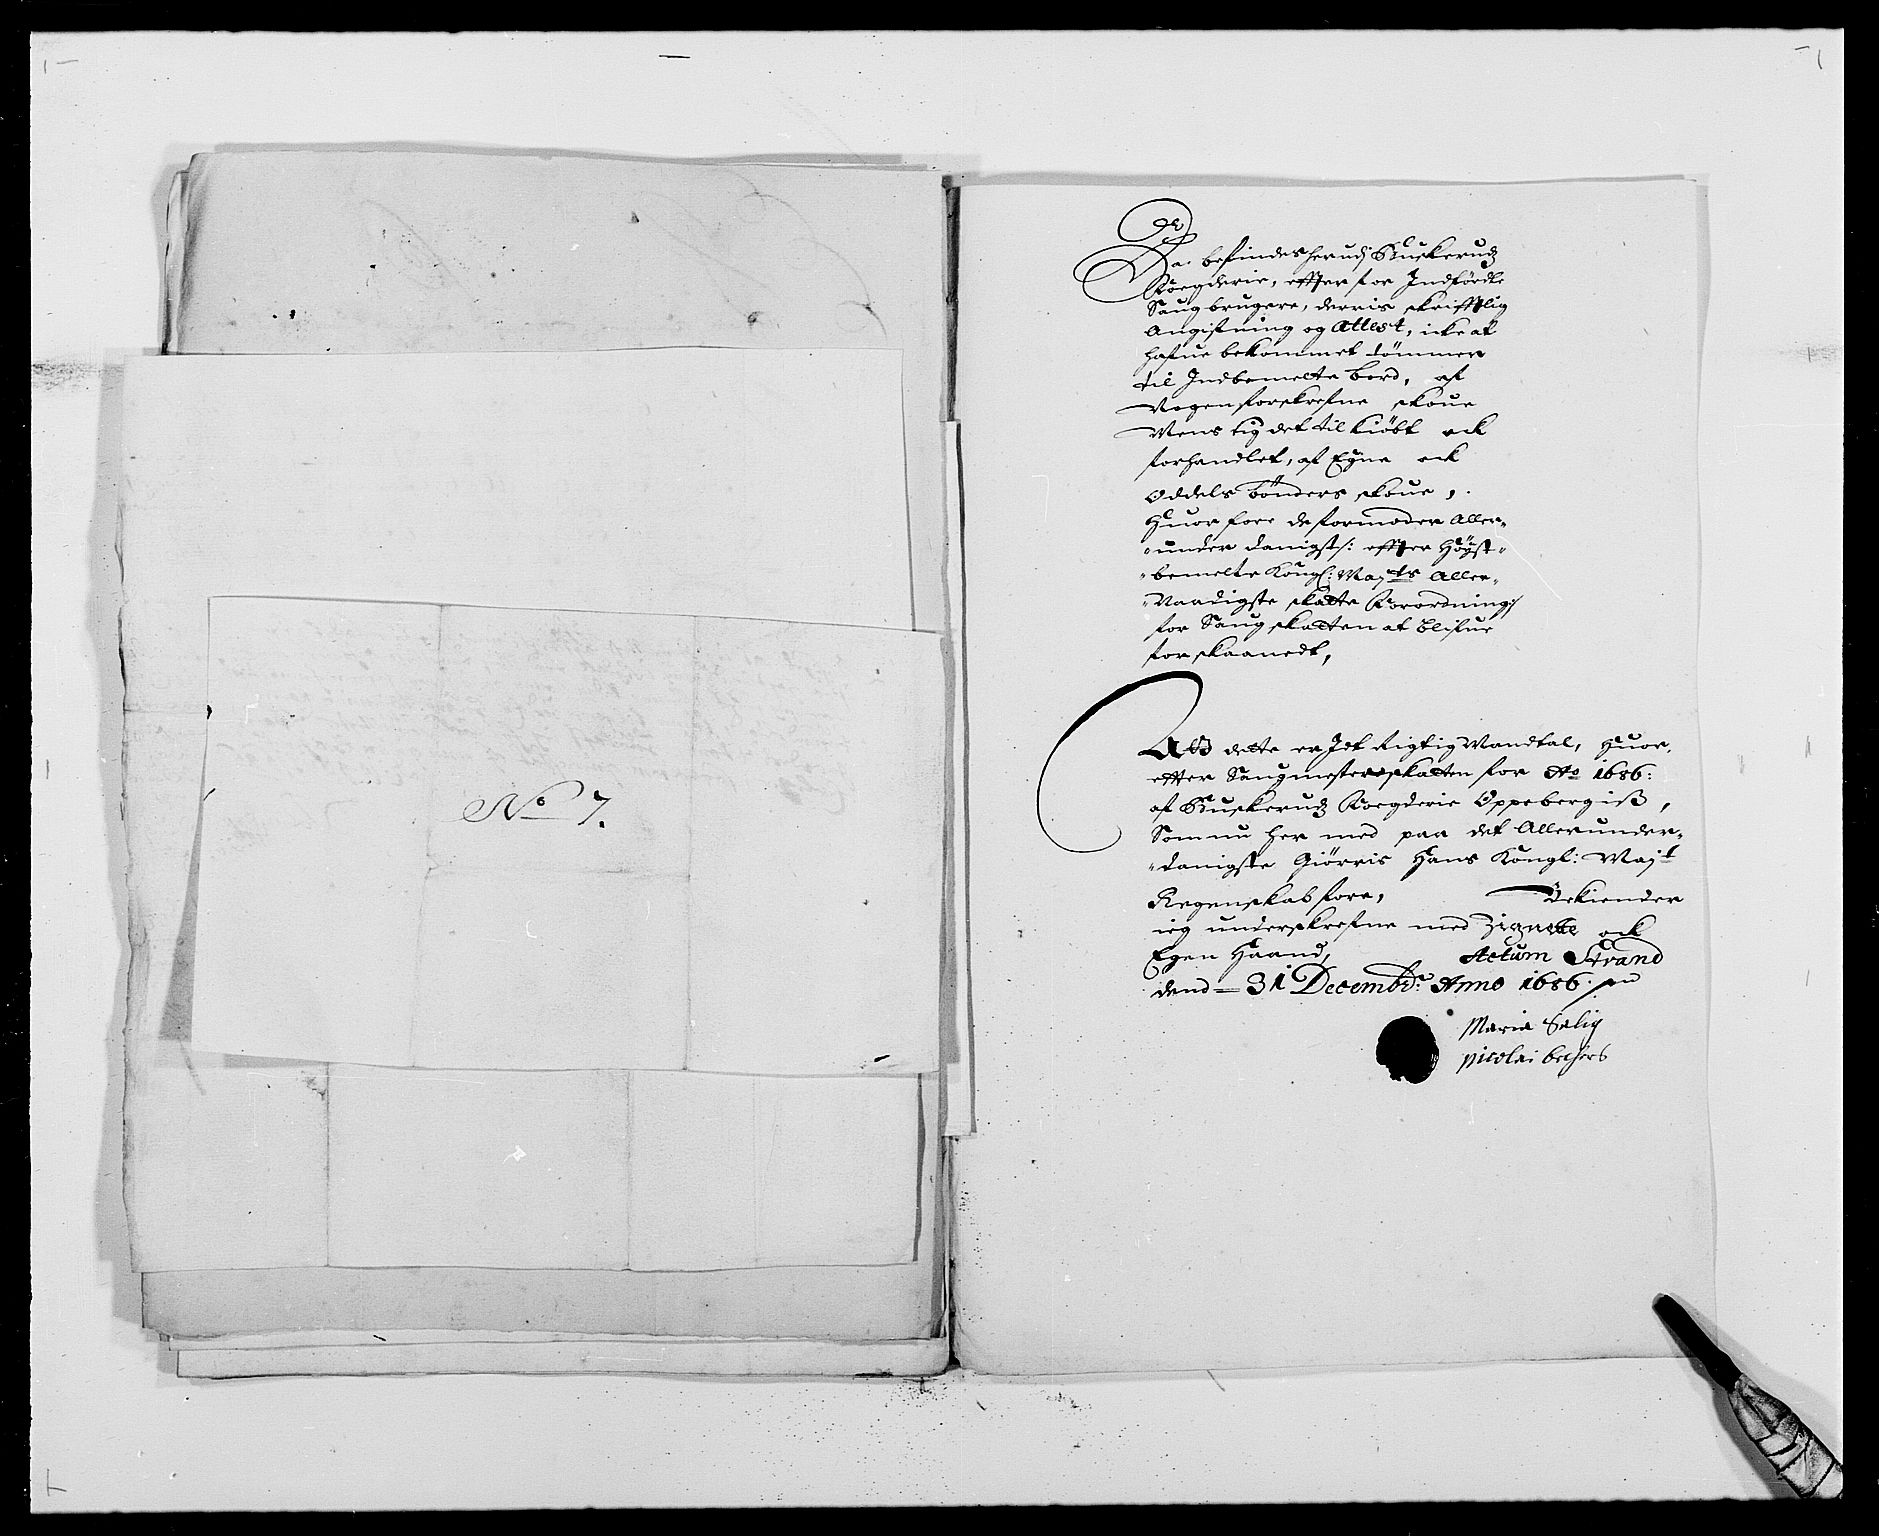 No 7.
De
Da befindes herudj Buskeruds
Foegderie, effter for Indfördte
Saugbrugere, derris skrifftlig
Angifning og Attest, icke at
hafue bekommet tömmer
til Indbemelte bord, af
Nogen forskrefne skoue
Mens sig det tilkiöbt ock
forhandlet, af Egne ock
Oddels bönders skoue,
Huor fore de formoder Aller-
-under danigst: effter Höyst-
-bemelte Kongl: Mayts Aller-
-Naadigste skatte Forordning
for Saugskatten at blifue
forskaanedt,
Att dette er Idt Rigtig Mandtal, Huor,
effter Saugmesterskatten for Ao 1686:
af Buskeruds Foegderie Oppebergis,
Som nu her med paa det Allerunder-
-danigste Giörris Hans Kongl: Mayt
Regenskab fore, Bekiender
ieg underskrefne med Zignete ock
Egen Haand, Actum Strand
dend 31 Decembr: Anno 1686.
Maria Salig
nicolai